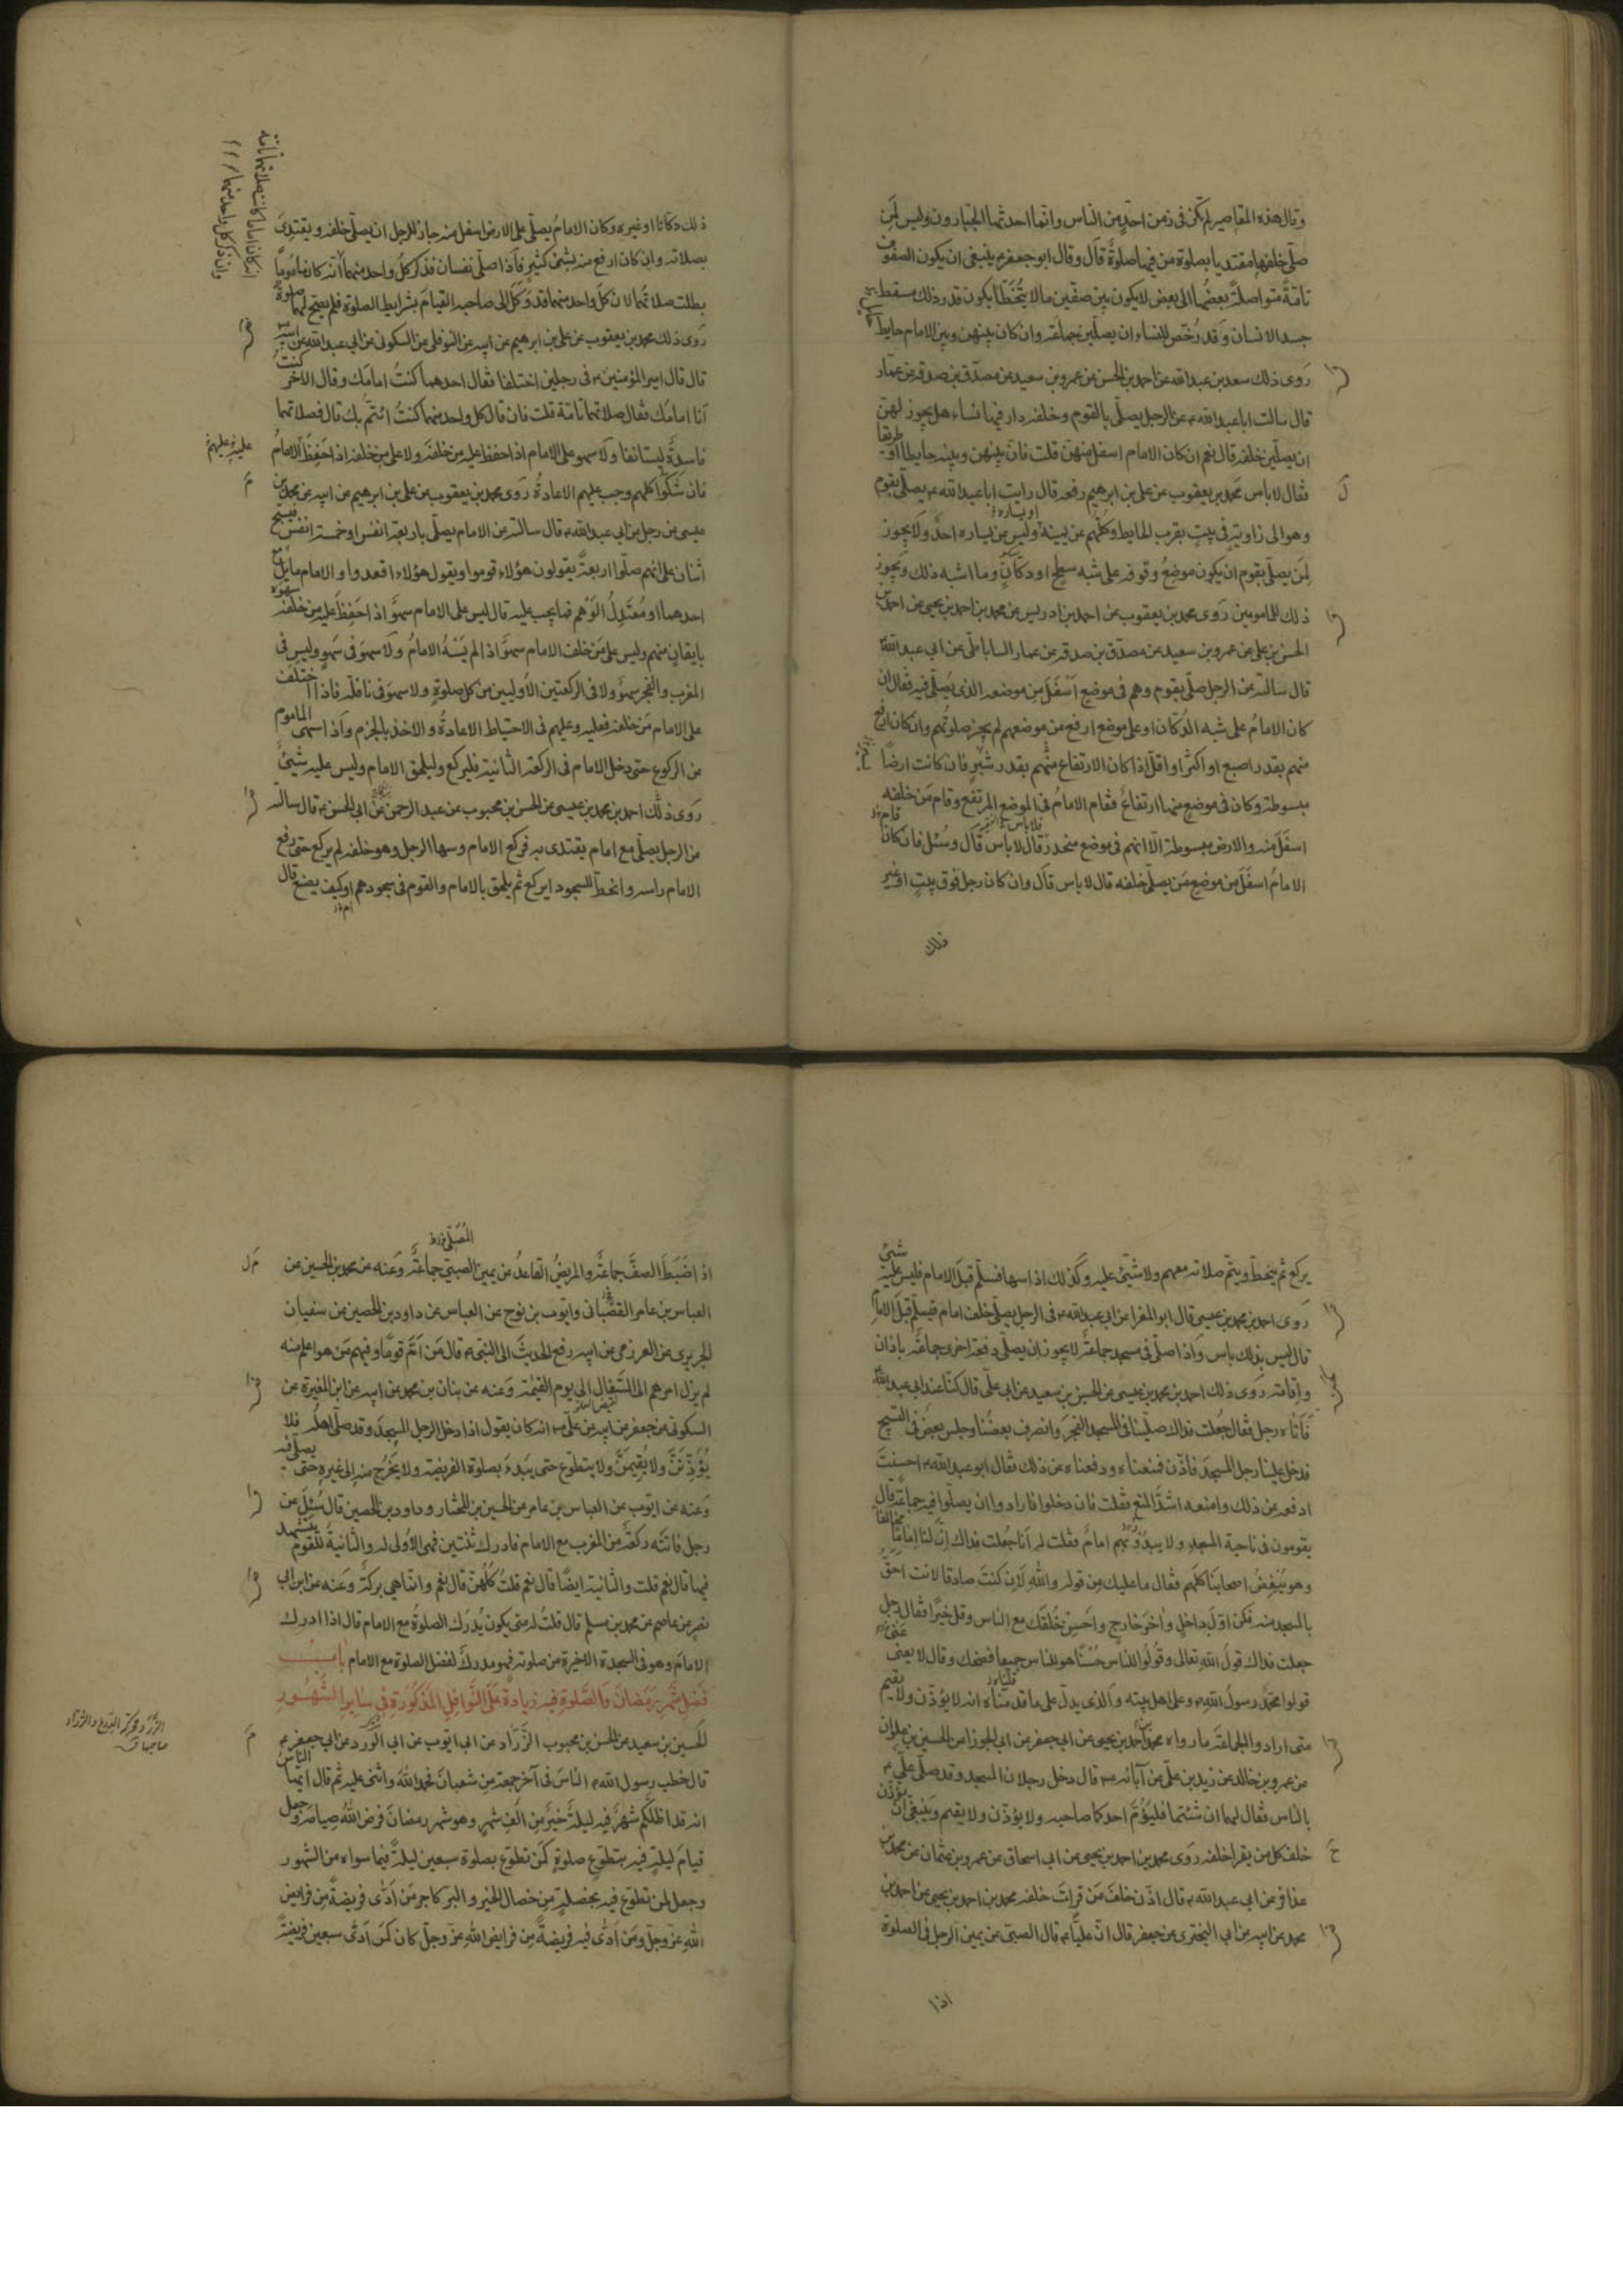 وقال هذه المقاصير لم تكن فى زمن احدٍ من الناس وانما احدثها الجبارون وليس لمن
صلّى خلفها مقتديا بصلوة من فيها صلوةٌ قال وقال ابو جعفر ينبغى ان يكون الصفوف
تامّةً متواصلةً بعضُها الى بعض لا يكون بين صفّين ما لا يُتَخَطّا يكون قدر ذلك مسقط
جسد الانسان وقد رُخّص للنساء ان يصلّين جماعة وان كان بينهن وبين الامام حايط
رَوى ذلك سعد بن عبدالله عن احمد بن الحسن عن عمرو بن سعيد عن مصدّق بن صدقة عن عمّار
قال سالت اباعبدالله عن الرجل يصلّى بالقوم وخلفه دار فيها نساء هل يجوز لهنّ
ان يصلّين خلفه قال نعم ان كان الامام اسفل منهنّ قلت فانّ بينهن وبينه حايطا او طريقا
فقال لا باس محمد بن يعقوب عن على بن ابرهيم رفعه قال رايت اباعبدالله يصلّى بقوم
وهو الى زاوية فى بيتٍ بقرب الحايط وكلّهم عن يمينه وليس عن يساره احدٌ ولا يجوز
لمن يصلّى بقوم ان يكون موضعُ وقوفه على شبه سطح او دكّانٍ وما اشبه ذلك ويجوز
ذلك للمامومين رَوى محمد بن يعقوب عن احمد بن ادريس عن محمد بن احمد بن يحيى عن احمد بن
الحسن بن على عن عمرو بن سعيد عن مصدّق بن صدقة عن عمار الساباطى عن ابى عبدالله
قال سالته عن الرجل صلّى بقوم وهم فى موضعٍ اَسْفَلَ مِن موضعه الذى يُصلّى فيه فقال ان
كان الامامُ على شبه الدُكّان او على موضع ارفع من موضعهم لم يجز صلوتُهم وان كان ارفع
منهم بقدر اصبع او اكثر او اقلّ اذا كان الارتفاع منهم بقدر شبرٍ فان كانت ارضاً
مبسوطة وكان فى موضعٍ منها ارتفاعٌ فقام الامامُ فى الموضع المرتفع وقام مَن خلفه
اسفَلَ منه والارض مبسوطة الّا انهم فى موضع منحدر قال لا باس قال وسُئل فان كان
الامامُ اسفَلَ مِن موضع مَن يصلّى خلفه قال لا باس قال وان كان رجل فوق بيتٍ او غير
ذلك
ذلك دكّانا او غيره وكان الامامُ يصلّى على الارض اسفل منه جاز للرجل ان يصلّى خلفه ويقتدِىَ
بصلاته وان كان ارفع منه بشئ كثير فاذا صلّى نفسان فذكر كلُ واحد منهما انّه كان مامُومًا
بطلت صلاتُهما لان كلّ واحد منهما قد وَكَلَ الى صاحبه القيامَ بشرايط الصلوة فلم يصحّ لهما صلوةٌ
رَوى ذلك محمد بن يعقوب عن على بن ابرهيم عن ابيه عن النوفلى عن السكونى عن ابى عبدالله عن ابيه
قال قال امير المؤمنين فى رجلين اختلفا فقال احدهما كنتُ امامَك وقال الاخر كنتُ
اَنا امامَك فقال صلاتهما تامّة قلت فان قال كل واحد منهما كنتُ ائتمّ بك قال فصلاتهما
فاسدةٌ يستانفا ولا سهو على الامام اذا حفظ عليه مَن خلفَه ولا على مَن خلفه اذا حَفِظَ الامامُ
فان شكّوا كلهم وجب عليهم الاعادةُ رَوى محمد بن يعقوب عن على بن ابرهيم عن ابيه عن محمد بن
عيسى عن رجل عن ابى عبدالله قال سالته عن الامام يصلّى باربعة انفس او خمسة انفس فيسبح
اثنان على انهم صلّوا اربعةً يقولون هؤلاء قوموا ويقول هؤلاء اقعدوا والامام مايلٌ مع
احدهما او مُعتَدِلُ الوَهْم فما يجب عليه قال ليس على الامام سهوٌ اذا حَفِظَ عليه مَن خلفَه سهوَه
بايقانٍ منهم وليس على مَن خلف الامام سهوٌ اذا لم يَسْهُ الامامُ ولا سهوَ فى سَهوٍ وليس فى
المغرب والفجر سهوٌ ولا فى الركعتين الاُوليين من كل صلوةٍ ولا سهوَ فى نافلة فاذا اختلَفَ
على الامام مَن خلفه فعليه وعليهم فى الاحتياط الاعادةُ والاخذ بالجزم واذا سهى الماموم
عن الركوع حتى دخل الامام فى الركعة الثانية فليركع وليلحق الامام وليس عليه شيئٌ
رَوى ذلك احمد بن محمد بن عيسى عن الحسن بن محبوب عن عبد الرحمن عن ابى الحسن قال سالته
عن الرجل يصلّى مع امام يقتدى به فركع الامام وسها الرجل وهو خلفه لم يركع حتى رفع
الامام راسه وانحطّ للسجود ايركع ثم يلحق بالامام والقوم فى سجودهم او كيف يصنع قال
يركع ثم ينحطّ ويتم صلاته معهم ولا شيئ عليه وكذلك اذا سها فسلّم قبل الامام فليس عليه شيئ
رَوى احمد بن محمد بن عيسى قال ابو المغرا عن ابى عبدالله فى الرجل يصلّى خلف امام فيسلّم قبلَ الامام
قال ليس بذلك باس واذا صلّى فى مسجد جماعةٌ لا يجوز ان يصلّى دفعة اخرى جماعةً باذان
واقامة رَوى ذلك احمد بن محمد بن عيسى عن الحسين بن سعيد عن ابى علىّ قال كنّا عند ابى عبدالله
فاتاه رجل فقال جُعلت فداك صلّينا فى المسجد الفجرَ وانصرف بعضُنا وجلس بعضٌ فى التسبيح
فدخل علينا رجل المسجدَ فاذّن فمنعناه ودفعناه عن ذلك فقال ابو عبدالله احسنتَ
ادفعه عن ذلك وامنعه اشدَّ المنع فقلت فان دخلوا فارادوا ان يصلّوا فيه جماعةً قال
يقومون فى ناحية المسجد ولا يبدُوُ بهم امامٌ فقلت له انا جُعلت فداك انّ لنا اماما مخالفا
وهو يُبْغِضُ اصحابَنا كلهم فقال ما عليك مِن قوله واللهِ لان كنتَ صادقا لانت احَقُّ
بالمسجد منه فكن اوّلَ داخلٍ واخِرَ خارجٍ واحسِن خُلقَك مع الناس وقل خيرًا فقال رجل
جعلت فداك قولُ الله تعالى وقُولُوا للناس حُسْنًا هو للناس جميعا فضحك وقال لا يعنى
قولوا محمّدٌ رسولُ الله وعلى اهل بيته والذى يدلّ على ما قدمناه انه لا يؤذّن ولا يقيم
متى ارادوا الجماعةَ ما رواه محمد بن احمد بن يحيى عن ابى جعفر عن ابى الجوزا عن الحسين بن علوان
عن عمرو بن خالد عن زيد بن علىّ عن آبائه قال دخل رجلان المسجد وقد صلّى علىّ
بالناس فقال لهما ان شئتما فليَؤُمَّ احدكما صاحبه ولا يؤذّن ولا يقيم ويَنْبغى ان يؤذّن
خلف كل من يقرا خلفه رَوى محمد بن احمد بن يحيى عن ابى اسحاق عن عمرو بن عثمان عن محمد بن
عذافر عن ابى عبدالله قال اذّن خلفَ مَن قراتَ خلفه محمد بن احمد بن يحيى عن احمد بن
محمد عن ابيه عن ابى البخترى عن جعفر قال انّ عليًّا قال الصبىّ عن يمين الرجل فى الصلوة
اذا
اذا ضَبَطَ الصفَّ جماعةٌ والمريضُ القاعدُ عن يمين الصبىّ جماعةٌ وعنه عن محمد بن الحسين عن
العباس بن عامر القصَبانى وايّوب بن نوح عن العباس عن داود بن الحصين عن سفيان
الجريرى عن العرزمى عن ابيه رفع الحديثَ الى النبى قال مَن اَمّ قومًا وفيهم مَن هو اعلم منه
لم يزل امرهم الى السَّفال الى يوم القيمة وعنه عن بنان بن محمد عن ابيه عن ابن المغيرة عن
السكونى عن جعفر عن ابيه عن علىّ انه كان يقول اذا دخل الرجل المسجدَ وقد صلّى اهلُه فلا
يُؤَذِّنَنَّ ولا يُقِيمَنَّ ولا يتطوع حتى يَبدءَ بصلوة الفريضة ولا يخرُج منه الى غيره حتى يصلّى فيه
وعنه عن ايوب عن العباس بن عامر عن الحسين بن المختار وداود بن الحصين قال سُئِلَ عن
رجل فاتَتْه ركعةٌ من المغرب مع الامام فادرك ثنتين فهى الاُولى له والثانيةُ للقوم يتشهد
فيها قال نعم قلت والثانية ايضًا قال نعم قلتُ كُلّهنّ قال نعم وانّما هى بركةٌ وعَنه عن ابن ابى
نصر عن عاصم عن محمد بن مسلم قال قلتُ له متى يكون يُدْرَك الصلوةُ مع الامام قال اذا ادرك
الامامَ وهو فى السجدة الاخيرة من صلوته فهو مدركٌ لفضل الصلوة مع الامام باب
فضل شهر رمضان والصلوة فيه زيادةً على النوافل المذكورة فى ساير الشهور
الحسين بن سعيد عن الحسن بن محبوب الزّرّاد عن ابى ايّوب عن ابى الورد عن ابى جعفر
قال خطب رسول الله الناسَ فى آخر جمعة مِن شعبانَ فحمد اللهَ واثنى عليه ثم قال ايها الناسُ
انه قد اظلّكم شهرٌ فيه ليلةٌ خيرٌ مِن اَلْفِ شهرٍ وهو شهر رمضانَ فرض اللهُ صيامَه وجعل
قيامَ ليلةٍ فيه بتطوّع صلوةٍ كمن تطوّع بصلوة سبعين ليلةً فيما سواه من الشهور
وجعل لمن تطوّع فيه بخصلةٍ من خصال الخير والبر كاجر مَن اَدّى فريضةً مِن فرايض
اللهِ عزّ وجلّ ومَن اَدّى فيه فريضةً مِن فرايض اللهِ عزّ وجلّ كان كمَن اَدّى سبعين فريضةً